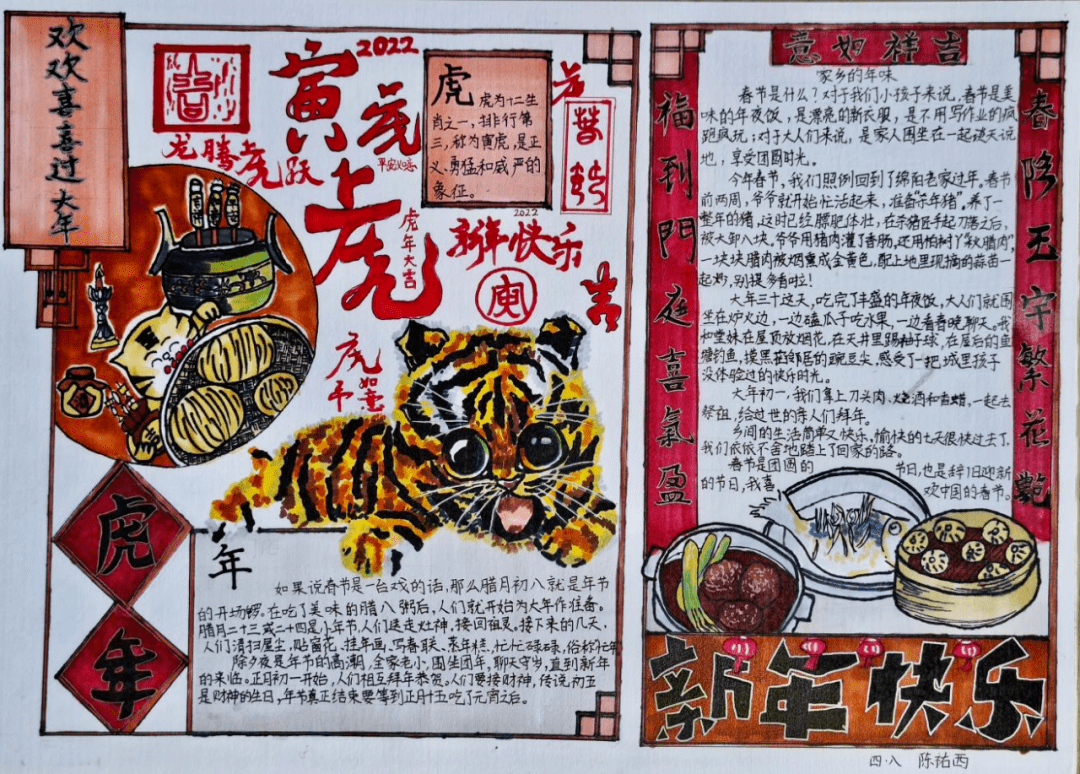 欢欢喜喜过大年
吉
龙腾虎跃
2022
寅虎
平安如意
上虎
虎年大吉
虎
虎为十二生
肖之一,排行第
三,称为寅虎,是正
义、勇猛和威严的
象征。
2022
新年快乐
吉
虎年
如意
虎
年
年
如果说春节是一台戏的话,那么腊月初八就是年节
的开场锣。在吃了美味的腊八粥后,人们就开始为大年作准备。
腊月二十三或二十四是小年节,人们送走灶神,接回祖灵。接下来的几天,
人们清扫屋尘,贴窗花、挂年画、写春联、蒸年糕,忙忙碌碌,俗称忙年
除夕夜是年节的高潮,全家老小,围坐团年,聊天守岁,直到新年
的来临。正月初一开始,人们相互拜年恭贺。人们要接财神,传说初五
是财神的生日,年节真正结束要等到正月十五吃了元宵之后。
意如祥吉
福到門庭喜氣盈
春降玉宇繁花艷
家乡的年味
春节是什么?对于我们小孩子来说,春节是美
味的年夜饭,是漂亮的新衣服,是不用写作业的疯
跑疯玩;对于大人们来说,是家人围坐在一起谈天说
地,享受团圆时光。
今年春节,我们照例回到了绵阳老家过年。春节
前两周,爷爷就开始忙活起来,准备"杀年猪"。养了一
整年的猪,这时已经膘肥体壮,在杀猪匠手起刀落后,
被大卸八块。爷爷用猪肉灌了香肠,还用柏树丫"熏腊肉",
一块块腊肉被烟熏成金黄色,配上地里现摘的蒜苗一
起炒,别提多香啦!
大年三十这天,吃完了丰盛的年夜饭,大人们就围
坐在炉火边,一边嗑瓜子吃水果,一边看春晚聊天。我
和堂妹在屋顶放烟花,在天井里踢柚子球,在屋后的鱼
塘钓鱼,摸黑茲邻居的豌豆尖,感受了一把城里孩子
没体验过的快乐时光。
大年初一,我们拿上刀头肉、烧酒和香蜡,一起去
祭祖,给过世的亲人们拜年。
乡间的生活简单又快乐。愉快的七天很快过去了,
我们依依不舍地踏上了回家的路。
春节是团圆的节日,也是辞旧迎新
的节日,我喜欢中国的春节。
新年快乐
四·八 陈祐西